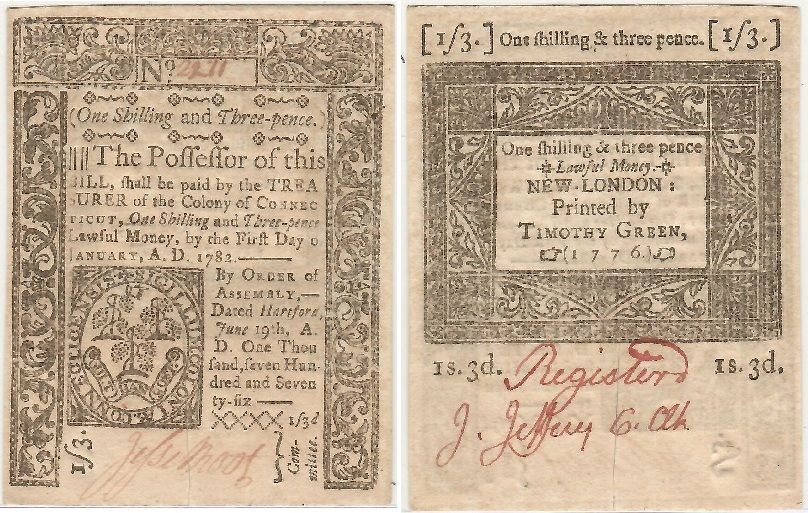 Nọ 2411
(One Shilling and Three-pence.)
The Poſſeſſor of this
BILL, ſhall be paid by the TREA
SURER of the Colony of CONNEC
TICUT, One Shilling and Three-pence
Lawful Money, by the Firſt Day o
JANUARY, A. D. 1782.
By ORDER of
ASSEMBLY,
Dated Hartford,
June 19th, A.
D. One Thou
ſand, ſeven Hun-
dred and Seven
ty-ſix
XXXX 1ſ3d
1ſ3.
Jesse Root
Com-
mittee.
[1ſ3.] One ſhilling & three pence. [1ſ3.]
One ſhilling & three pence
Lawful Money.
NEW-LONDON:
Printed by
TIMOTHY GREEN,
(1776.)
1s. 3d. Registerd 1s. 3d.
J. Jeffery C. Clk